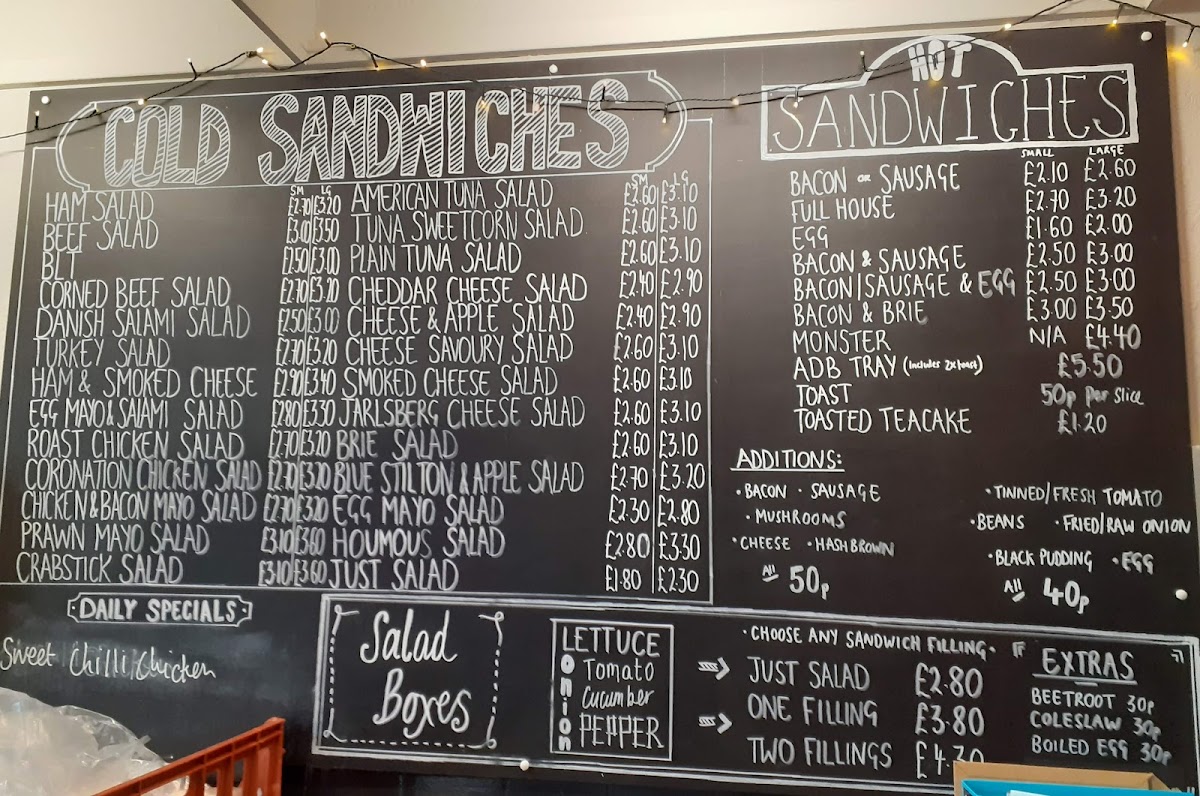 COLD SANDWICHES
SM LG
HAM SALAD £2.70 £3.20
BEEF SALAD £3.00 £3.50
BLT £2.50 £3.00
CORNED BEEF SALAD £2.70 £3.20
DANISH SALAMI SALAD £2.50 £3.00
TURKEY SALAD £2.70 £3.20
HAM & SMOKED CHEESE £2.90 £3.40
EGG MAYO & SALAMI SALAD £2.80 £3.30
ROAST CHICKEN SALAD £2.70 £3.20
CORONATION CHICKEN SALAD £2.70 £3.20
CHICKEN & BACON MAYO SALAD £2.70 £3.20
PRAWN MAYO SALAD £3.10 £3.60
CRABSTICK SALAD £3.10 £3.60
SM LG
AMERICAN TUNA SALAD £2.60 £3.10
TUNA SWEETCORN SALAD £2.60 £3.10
PLAIN TUNA SALAD £2.60 £3.10
CHEDDAR CHEESE SALAD £2.40 £2.90
CHEESE & APPLE SALAD £2.40 £2.90
CHEESE SAVOURY SALAD £2.60 £3.10
SMOKED CHEESE SALAD £2.60 £3.10
JARLSBERG CHEESE SALAD £2.60 £3.10
BRIE SALAD £2.60 £3.10
BLUE STILTON & APPLE SALAD £2.70 £3.20
EGG MAYO SALAD £2.30 £2.80
HOUMOUS SALAD £2.80 £3.30
JUST SALAD £1.80 £2.30
HOT
SANDWICHES
SMALL LARGE
BACON OR SAUSAGE £2.10 £2.60
FULL HOUSE £2.70 £3.20
EGG £1.60 £2.00
BACON & SAUSAGE £2.50 £3.00
BACON/SAUSAGE & EGG £2.50 £3.00
BACON & BRIE £3.00 £3.50
MONSTER N/A £4.40
ADB TRAY (includes 2x toast) £5.50
TOAST 50p Per Slice
TOASTED TEACAKE £1.20
ADDITIONS:
• BACON • SAUSAGE
• MUSHROOMS
• CHEESE • HASHBROWN
All 50p
• TINNED/FRESH TOMATO
• BEANS • FRIED/RAW ONION
• BLACK PUDDING • EGG
All 40p
• DAILY SPECIALS •
Sweet Chilli Chicken
Salad
Boxes
LETTUCE
Onion
Tomato
Cucumber
PEPPER
• CHOOSE ANY SANDWICH FILLING •
JUST SALAD £2.80
ONE FILLING £3.80
TWO FILLINGS £4.30
EXTRAS
BEETROOT 30p
COLESLAW 30p
BOILED EGG 30p